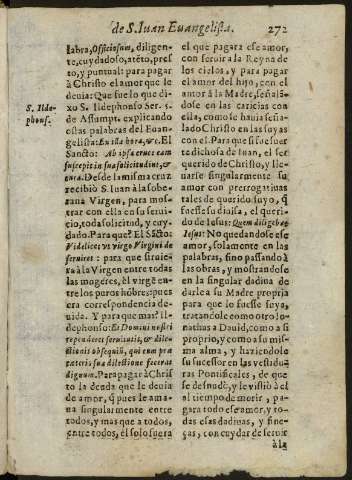 de S. Iuan Euangelista. 272
S. Ilde-
phons.
labra, Officiosum, diligen-
te, cuydadoso, atẽto, pres-
to, y puntual: para pagar
à Christo el amor que le
deuia: Que fue lo que di-
xo S. Ildephonso Ser. 5.
de Assumpt. explicando
estas palabras del Euan-
gelista: Ex illa hora, &c. El
Sancto: Ab ipsa cruce eam
suscepit in sua solicitudine, &
cura. Desde la misma cruz
recibiò S. Iuan à la sobe-
rana Virgen, para mos-
trar con ella en su serui-
cio, toda solicitud, y cuy-
dado. Para que? El Sãcto:
Videlicet: vt virgo Virgini de
seruiret: para que siruies-
se à la Virgen entre todas
las mogeres, èl virgẽ entre
los puros hõbres: pues
era correspondencia de-
uida. Y para que mas? Il-
dephonso: Et Domini nostri
rependeret seruitutis, & dile-
ctionis obsequiũ, qui eum præ
cæteris sua dilectione fecerat
dignum. Para pagar à Chris
to la deuda que le deuia
de amor, q̃ pues le ama-
ua singularmente entre
todos, y mas que a todos,
entre todos, el solo fuera
el que pagara esse amor,
con seruir a la Reyna de
los cielos, y para pagar
el amor del hijo, con el
amor à la Madre, señalã-
dose en las caricias con
ella, como se hauia seña-
lado Christo en las suyas
con el: Para que si su fuer
te dichosa de Iuan, el ser
querido de Christo, y lle-
uarse singularmente su
amor con prerrogatiuas
tales de querido suyo, q̃
fuesse su diuisa, el queri-
do de Iesus: Quem diligebat
Iesus: No quedandose ese
amor, solamente en las
palabras, sino passando à
las obras, y mostrandose
en la singular dadiua de
darle a su Madre propria
para que lo fuesse suya,
tratandole como otro Io-
nathas a Dauid, como a si
proprio, y como a su mis-
ma alma, y haziendole
su sucessor en las vestidu
ras Pontificales, de que
se desnudò, y le vistiò à el
al tiempo de morir, pa-
gara todo esse amor, y to-
das essas dadiuas, y finezas,
con cuydar de seruir
à la